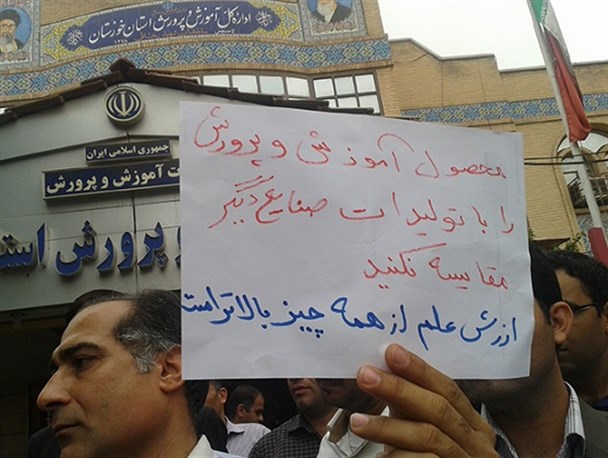 اداره کل آموزش و پرورش استان خوزستان
جمهوری اسلامی ایران
ت آموزش و پرورش
و پرورش است
محصول آموزش و پرورش
را با تولیدات صنایع دیگر
مقایسه نکنید
ارزش علم از همه چیز بالاتر است